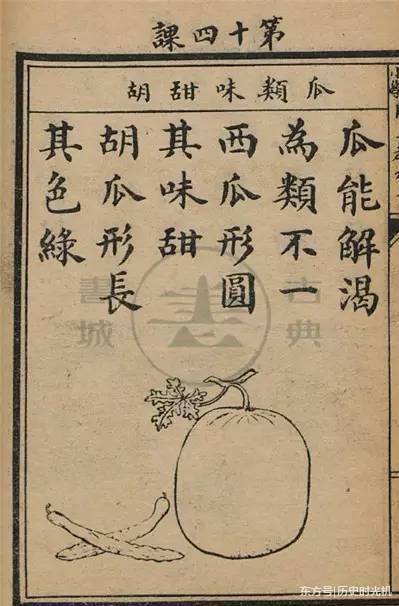 第十四課
瓜類味甜胡
瓜能解渴
為類不一
西瓜形圓
其味甜
胡瓜形長
其色綠
古典書城
东方号/历史时光机